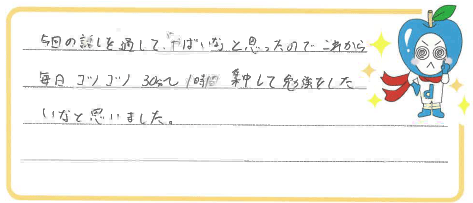 今回の話しを通して、やばいなと思ったのでこれから
毎日コツコツ30分〜1時間集中して勉強をした
いなと思いました。